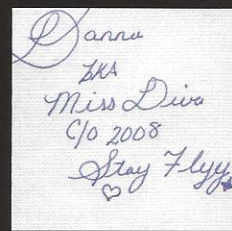 Danna
AKA
Miss Diva
C/O 2008
Stay Flyy